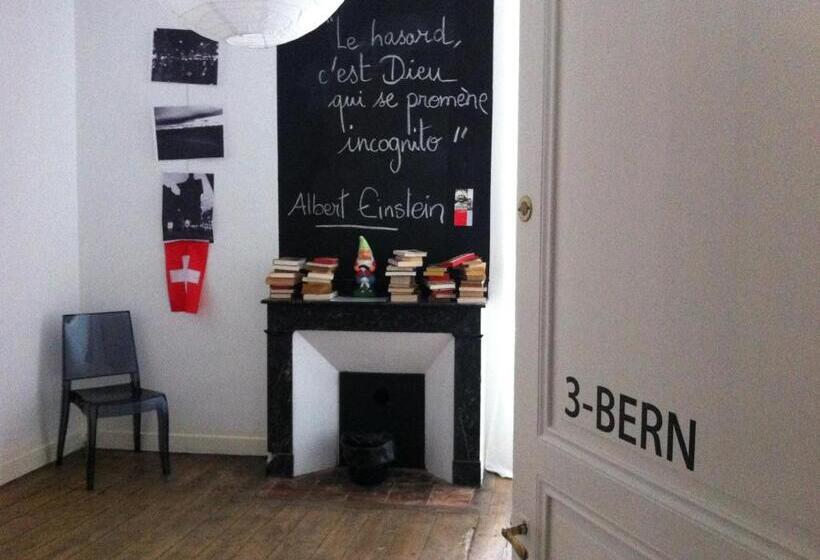 "Le hasard,
c'est Dieu
qui se promène
incognito"
Albert Einstein
3-BERN